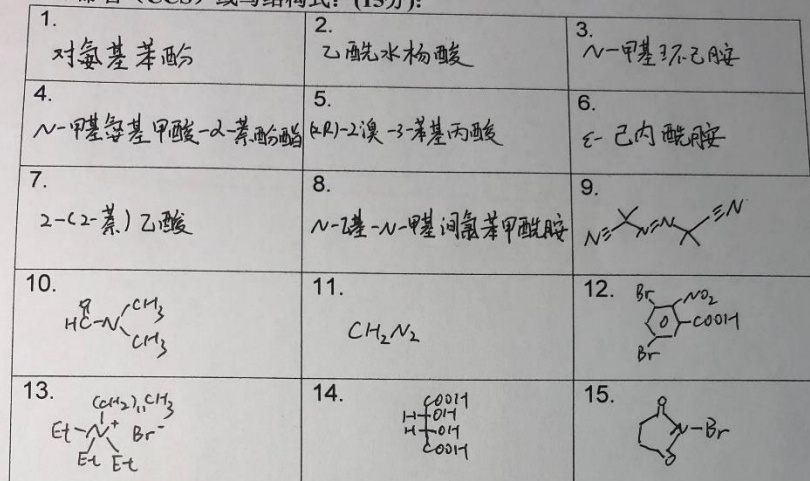 命名（CCS）或写结构式：(15分):
1.
对氨基苯酚
2.
乙酰水杨酸
3.
N-甲基环己胺
4.
N-甲基氨基甲酸-α-萘酚酯
5.
(2R)-2溴-3-苯基丙酸
6.
ε-己内酰胺
7.
2-(2-萘)乙酸
8.
N-乙基-N-甲基间氯苯甲酰胺
9.
N≡ N=N ≡N
10.
O
HC-N
CH3
CH3
11.
CH2N2
12.
Br
NO2
COOH
Br
13.
(CH2)11CH3
Et-N+ Br-
Et Et
14.
COOH
H OH
H OH
COOH
15.
O
N-Br
O